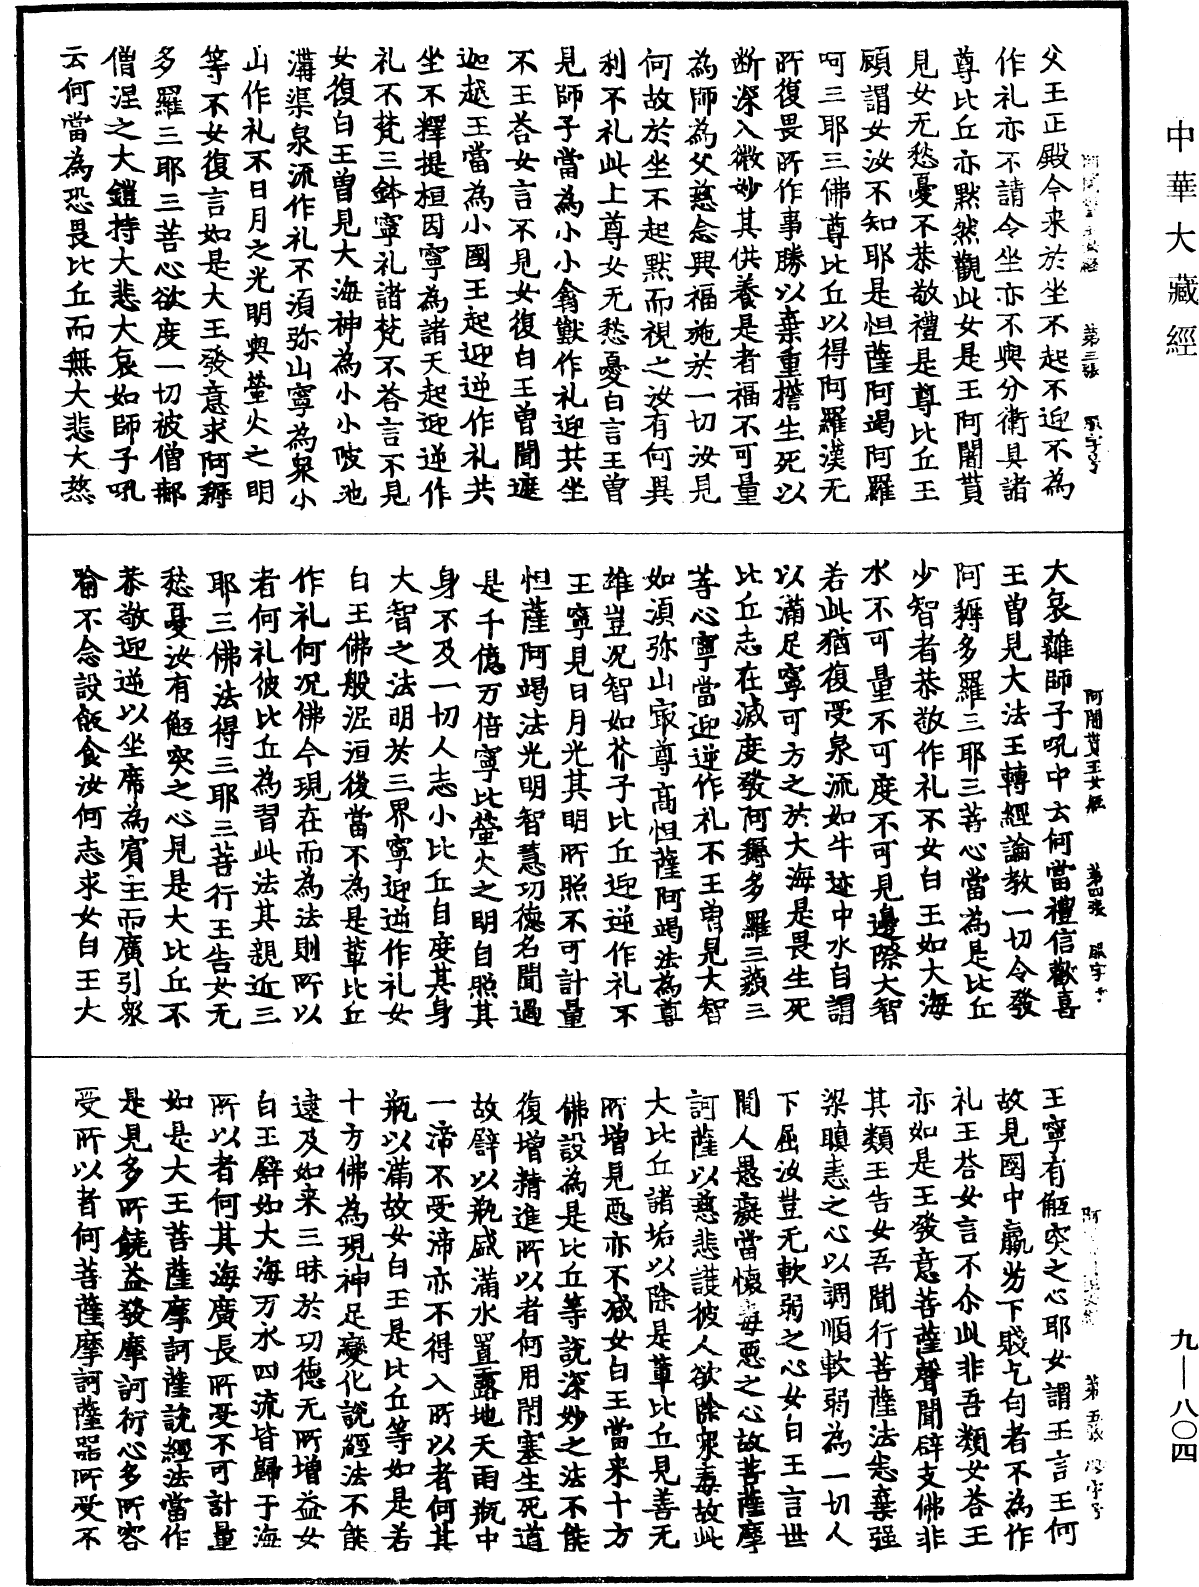 中華大藏經
第三張
父王正殿令来於坐不起不迎不為
作礼亦不請令坐亦不與分衛具諸
尊比丘亦黙然觀此女是王阿闍貰
見女无愁憂不恭敬禮是尊比丘王
顧謂女汝不知耶是怛薩阿竭阿羅
呵三耶三佛尊比丘以得阿羅漢无
所復畏所作事勝以棄重擔生死以
断深入微妙其供養是者福不可量
為師為父慈念興福施於一切汝見
何故於坐不起黙而視之汝有何異
利不礼此上尊女无愁憂白言王曽
見師子當為小小禽獸作礼迎共坐
不王荅女言不見女復白王曽聞遮
迦越王當為小國王起迎逆作礼共
坐不釋提桓因寧為諸天起迎逆作
礼不梵三鉢寧礼諸梵不荅言不見
女復白王曽見大海神為小小陂池
溝渠泉流作礼不湏弥山寧為衆小
山作礼不日月之光明與螢火之明
等不女復言如是大王發意求阿耨
多羅三耶三菩心欲度一切被僧那
僧涅之大鎧持大悲大哀如師子吼
云何當為恐畏比丘而無大悲大慈
阿闍貰王女經 第四張
大哀離師子吼中云何當禮信歡喜
王曽見大法王轉經論教一切令發
阿耨多羅三耶三菩心當為是比丘
少智者恭敬作礼不女白王如大海
水不可量不可度不可見邊際大智
若此猶復受泉流如牛迹中水自謂
以滿足寧可方之於大海是畏生死
比丘志在滅度發阿耨多羅三藐三
菩心寧當迎逆作礼不王曽見大智
如湏弥山㝡尊高怛薩阿竭法為尊
雄豈況智如芥子比丘迎逆作礼不
王寧見日月光其明所照不可計量
怛薩阿竭法光明智慧功德名聞過
是千億万倍寧比螢火之明自照其
身不及一切人志小比丘自度其身
大智之法明於三界寧迎逆作礼女
白王佛般泥洹後當不為是輩比丘
作礼何況佛今現在而為法則所以
者何礼彼比丘為習此法其親近三
耶三佛法得三耶三菩行王告女无
愁憂汝有觝突之心見是大比丘不
恭敬迎逆以坐席為賔主而廣引衆
喻不念設飯食汝何志求女白王大
第五張
王寧有觝突之心耶女謂王言王何
故見國中羸劣下賤乞匃者不為作
礼王荅女言不尒此非吾類女荅王
亦如是王發意菩薩聲聞辟支佛非
其類王告女吾聞行菩薩法悉棄强
梁瞋恚之心以調順軟弱為一切人
下屈汝豈无軟弱之心女白王言世
閒人愚癡當懷毒惡之心故菩薩摩
訶薩以慈悲護彼人欲除衆毒故此
大比丘諸垢以除是輩比丘見善无
所增見惡亦不减女白王當来十方
佛設為是比丘等說深妙之法不能
復增精進所以者何用閇塞生死道
故譬以瓶盛滿水置露地天雨瓶中
一渧不受渧亦不得入所以者何其
瓶以滿故女白王是比丘等如是若
十方佛為現神足變化說經法不能
逮及如来三昧於功德无所增益女
白王譬如大海万水四流皆歸于海
所以者何其海廣長所受不可計量
如是大王菩薩摩訶薩說經法當作
是見多所饒益發摩訶衍心多所容
受所以者何菩薩摩訶薩器所受不
九—八〇四